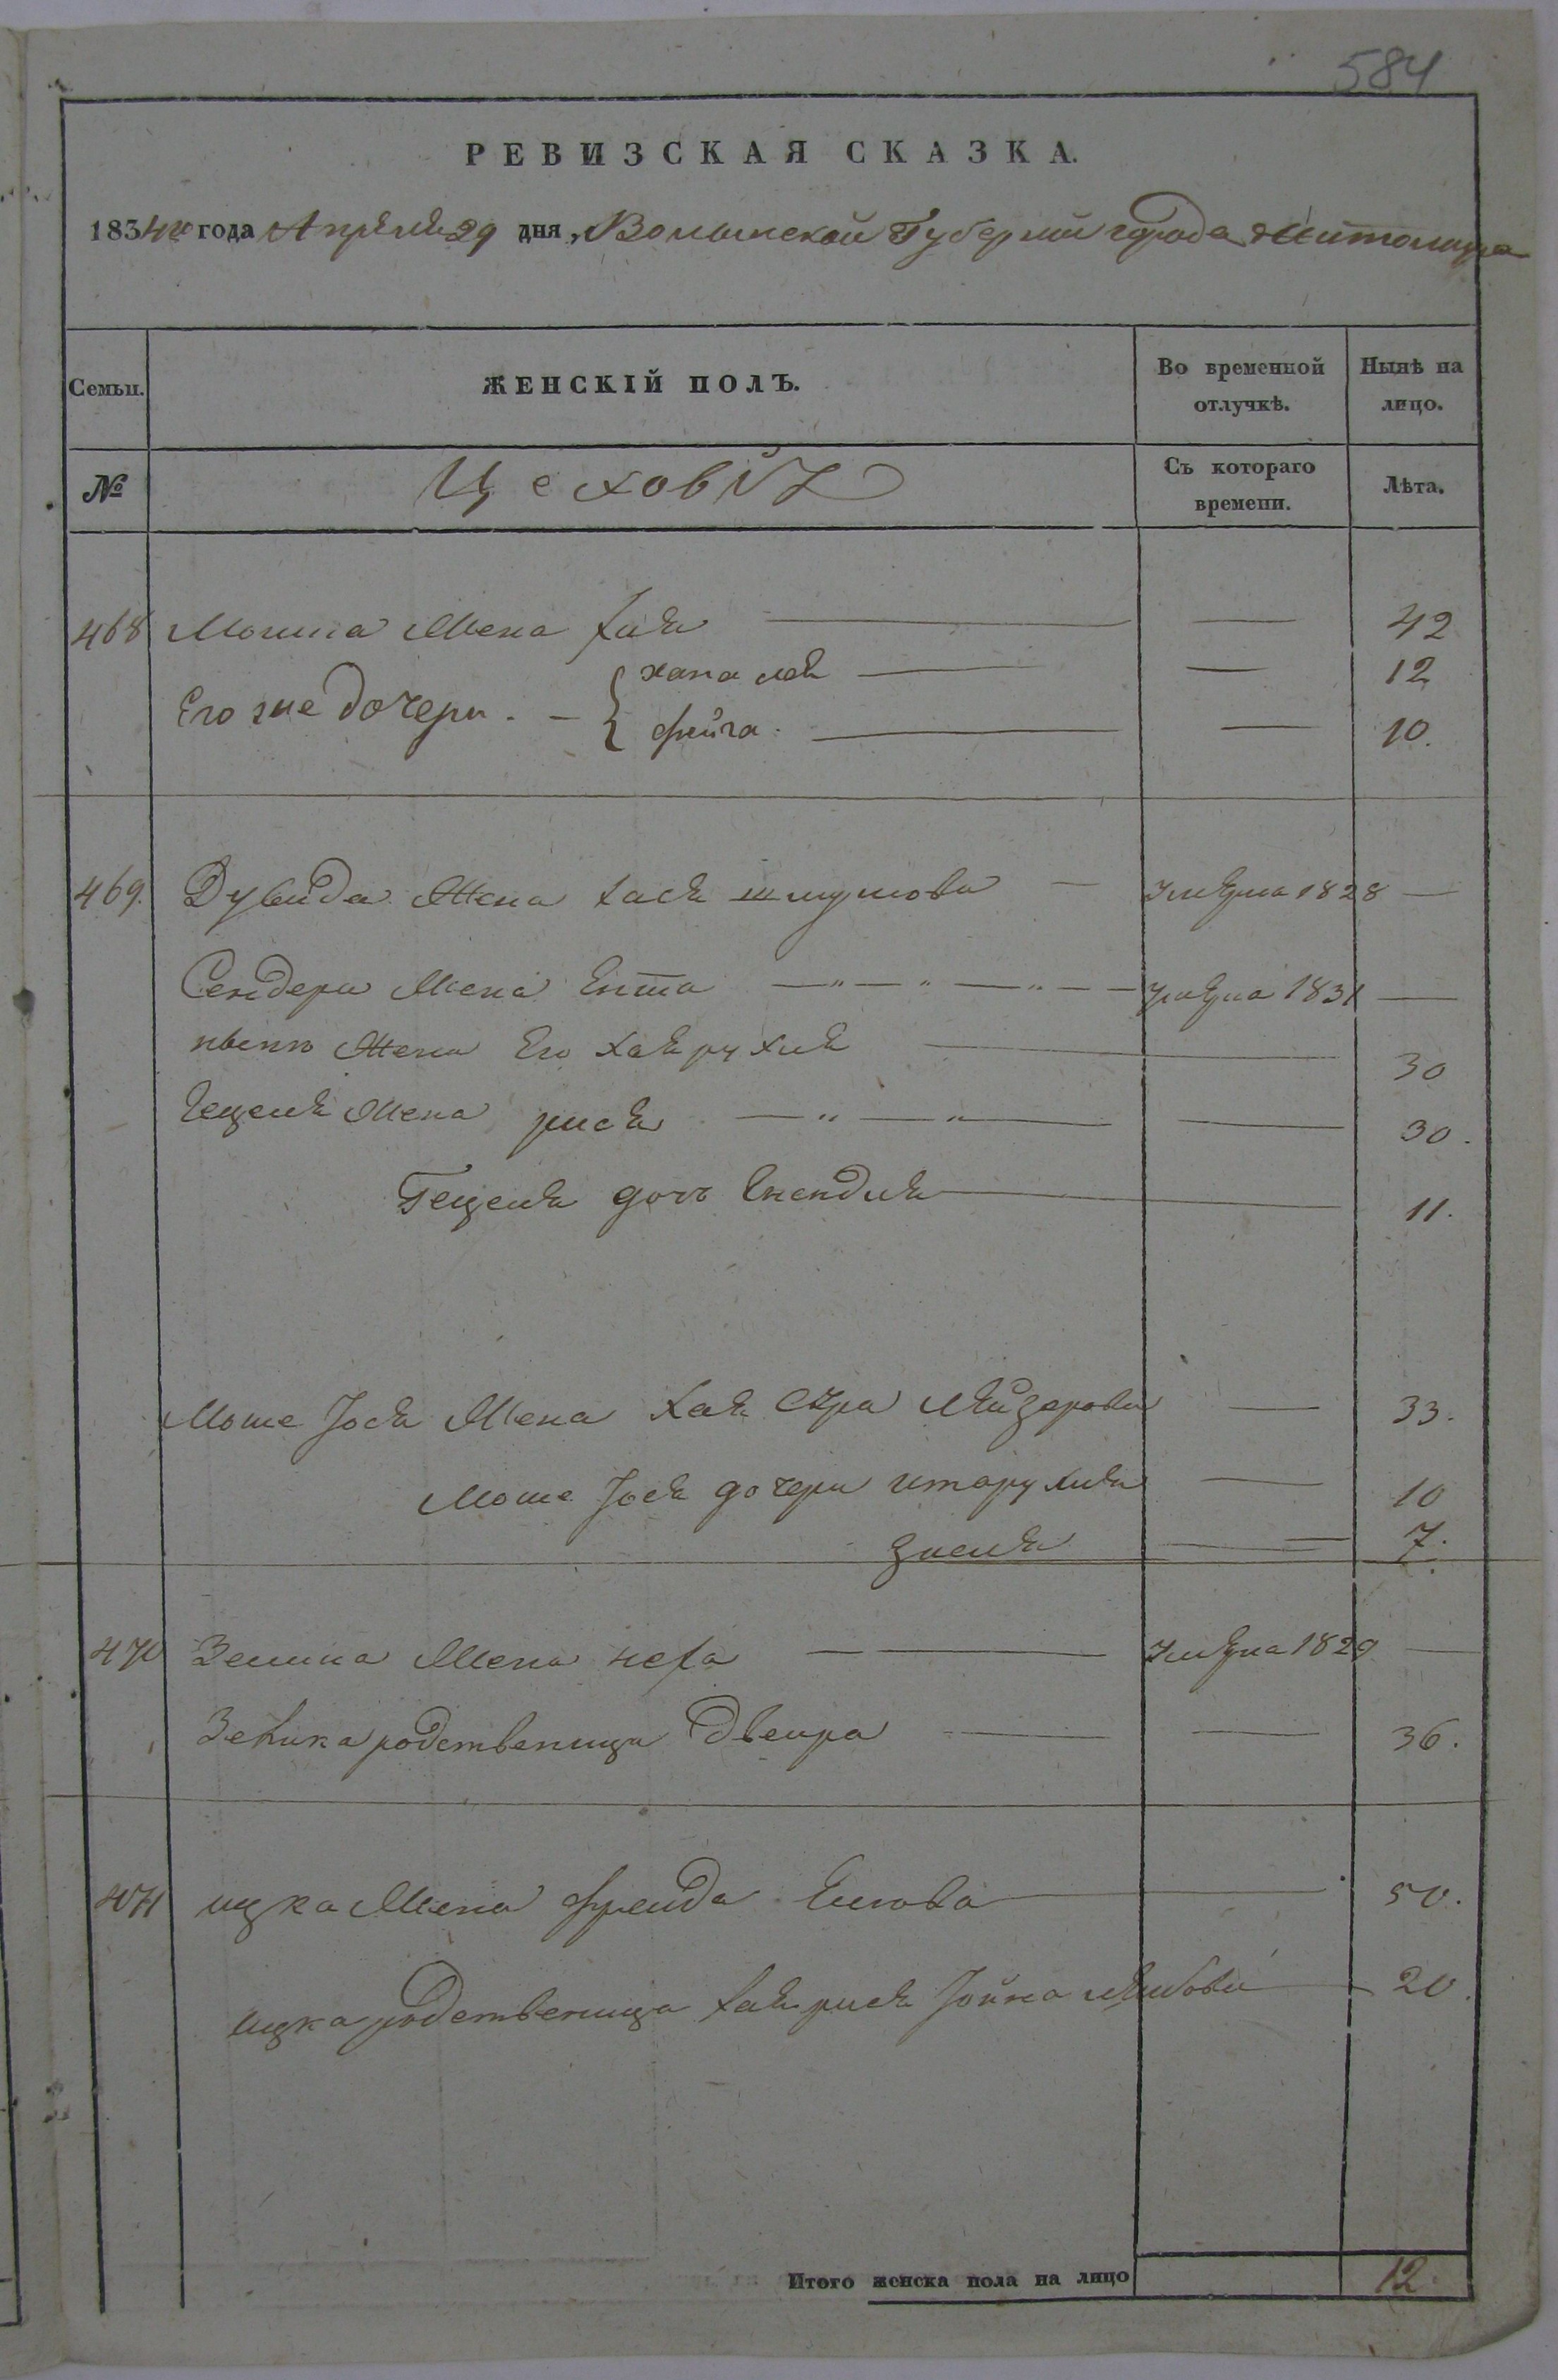 584
РЕВИЗСКАЯ СКАЗКА.
1834го года Апреля 29 дня, Волынской Губернии города Житомира
Семьи. ЖЕНСКІЙ ПОЛЪ. Во временной отлучкѣ. Нынѣ на лицо.
№ Цеховых Съ котораго времени. Лѣта.
468 Мошка Жена хая — — 42
Его же дочери. — { хана лея — — 12
фейга. — — 10.
469. Дувида Жена хася шмулiова — 1828 —
Сендера Жена Ента — „ — „ — „ — 1831 —
Жена Его хая рухля — 30
Гецеля Жена рися — „ — „ — — 30.
Гецеля дочь Енендля — 11.
Моше Йося Жена Хая Сура Лейзерова — 33.
Моше Йося дочери рухля — 10
зисля — 7.
470 Зелика Жена неха — 1829 —
Зелика родственица Двейра — — 36.
471 ицка Жена фрейда — 50.
ицка родственица хая рися Йойна — 20.
Итого женска пола на лицо 12.